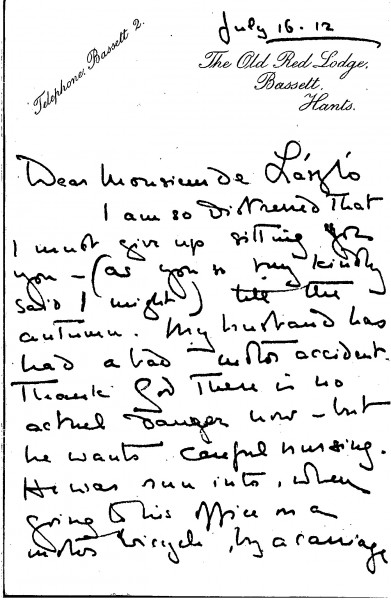 July 16. 12
Telephone, Bassett 2.
The Old Red Lodge,
Bassett,
Hants.
Dear Monsieur de László
I am so distressed that
I must give up sitting for
you – (as you so very kindly
said I might) till the
autumn. My husband has
had a bad – motor accident.
Thank God there is no
actual danger now – but
he wants careful nursing.
He was run into, when
going to his office on a
motor bicycle, by a carriage